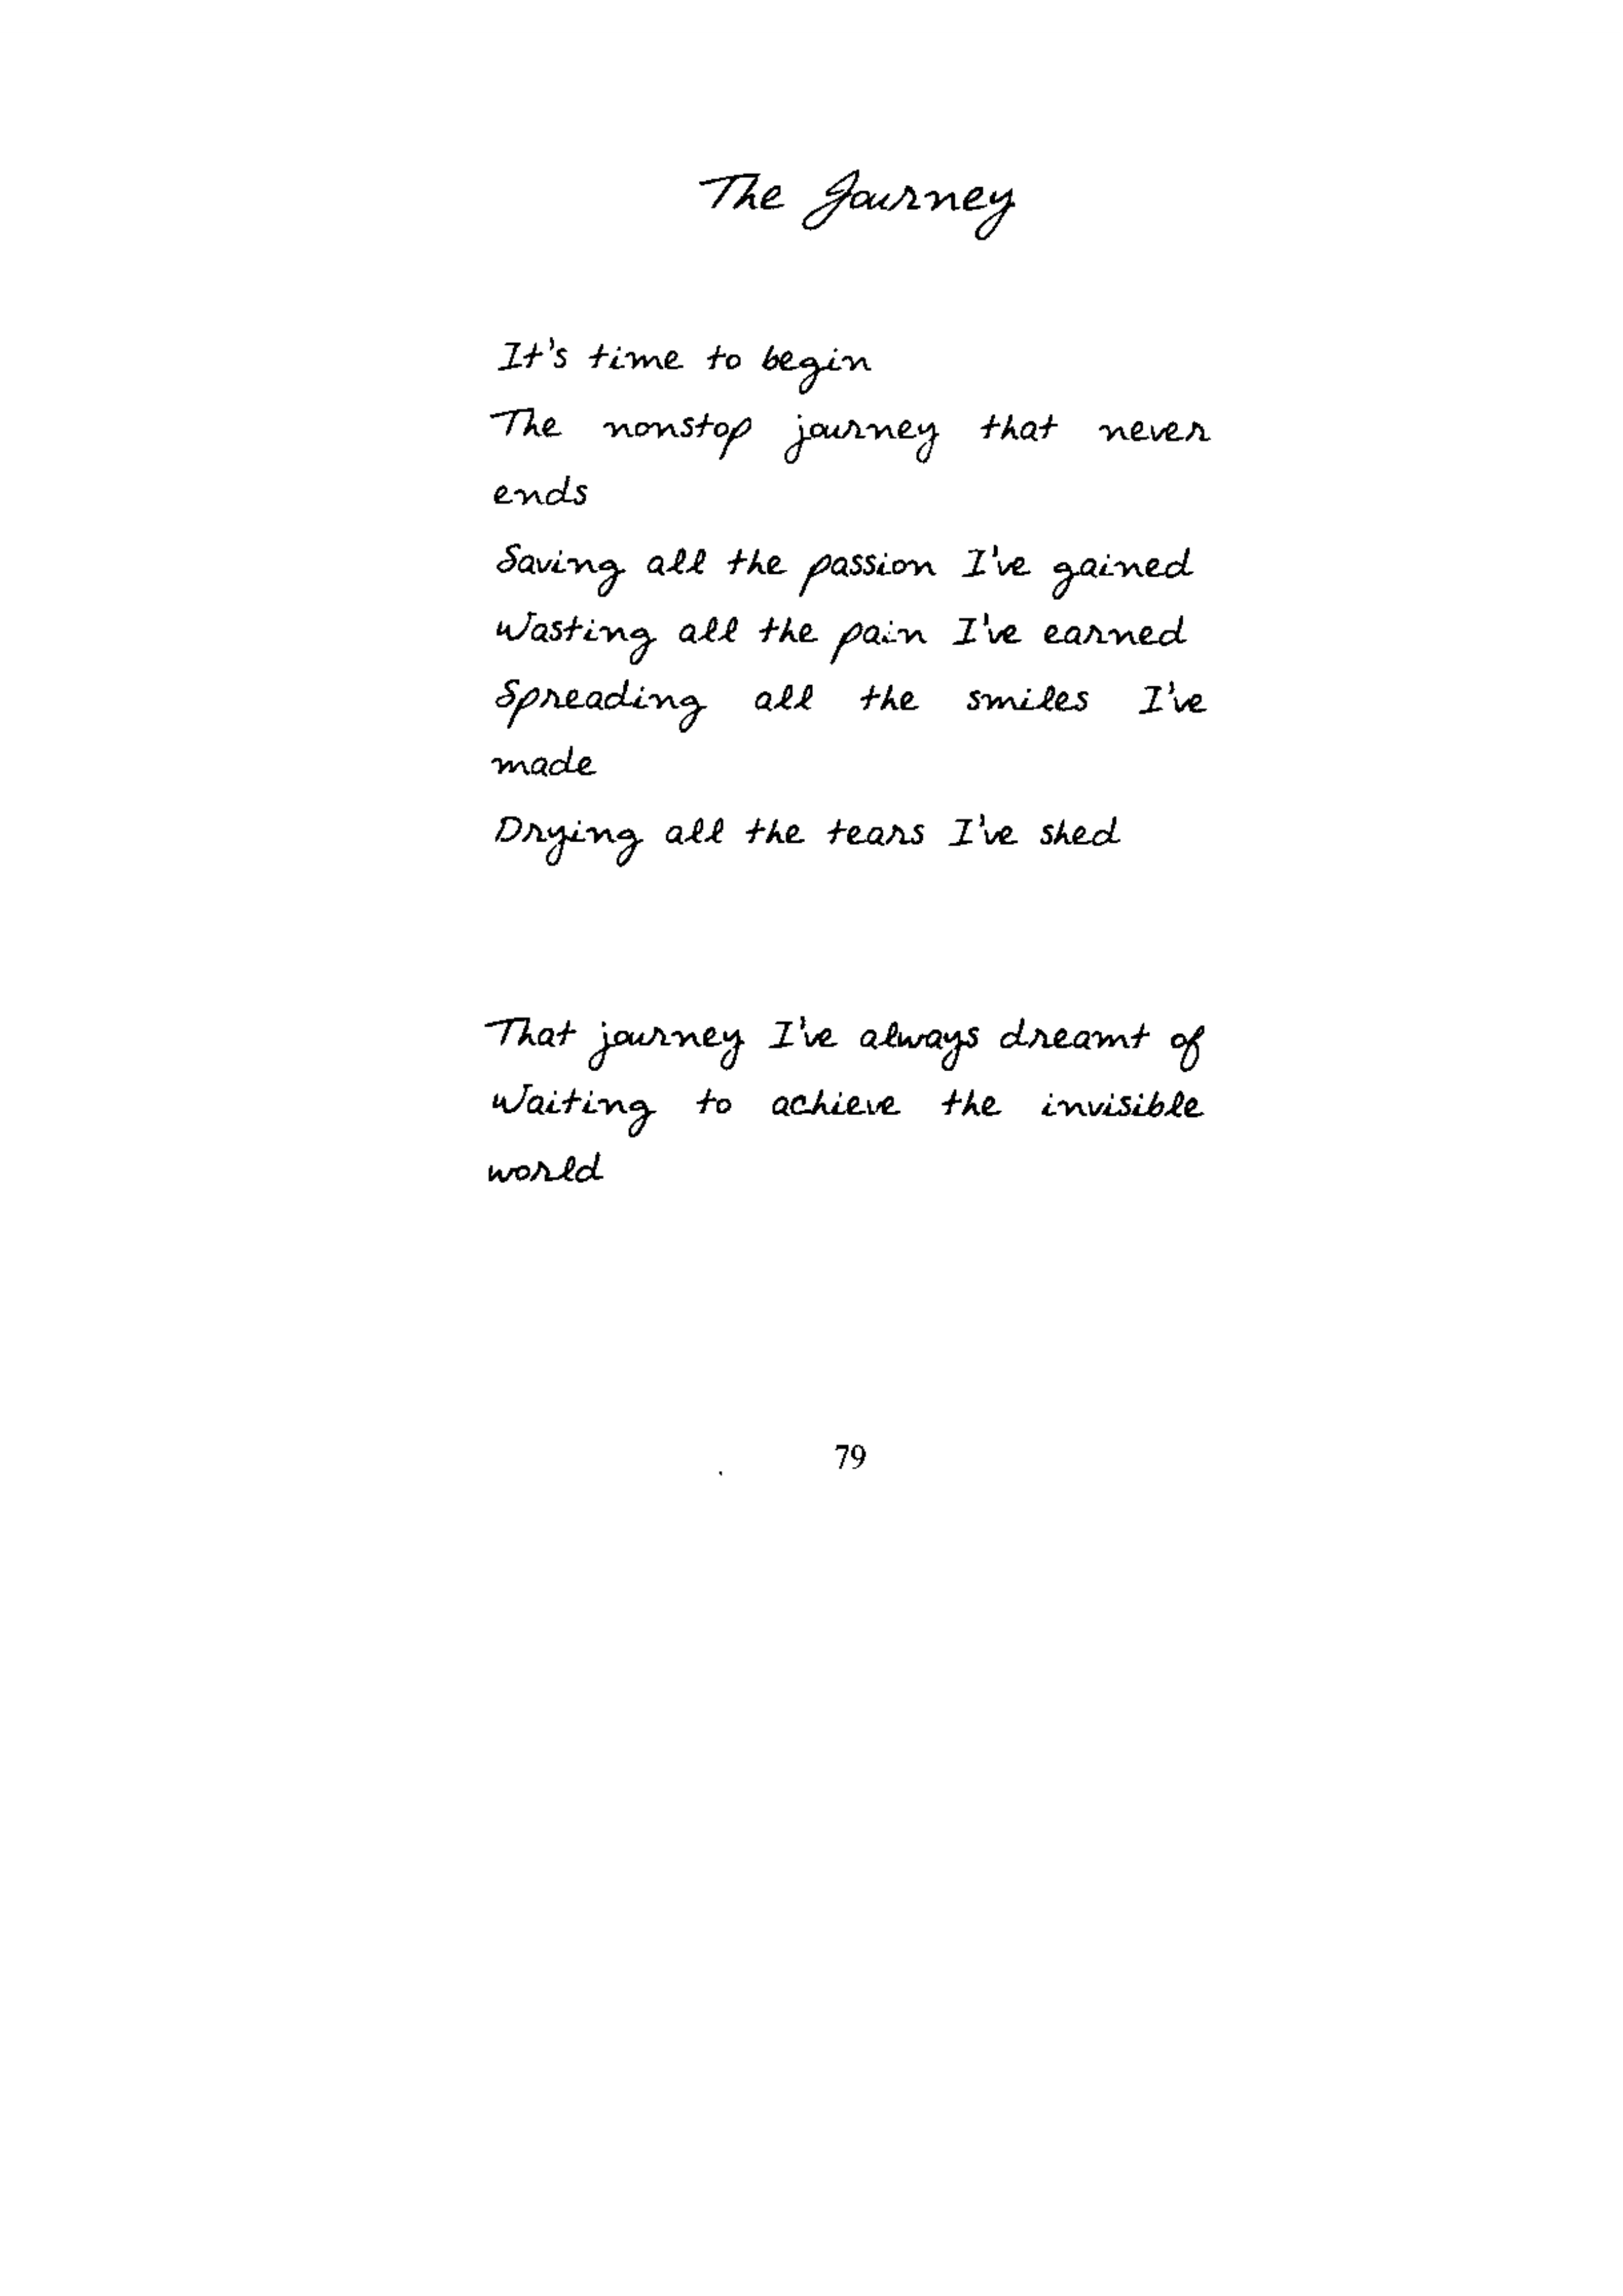 The Journey
It's time to begin
The nonstop journey that never
ends
Saving all the passion I've gained
Wasting all the pain I've earned
Spreading all the smiles I've
made
Drying all the tears I've shed
That journey I've always dreamt of
Waiting to achieve the invisible
world
79